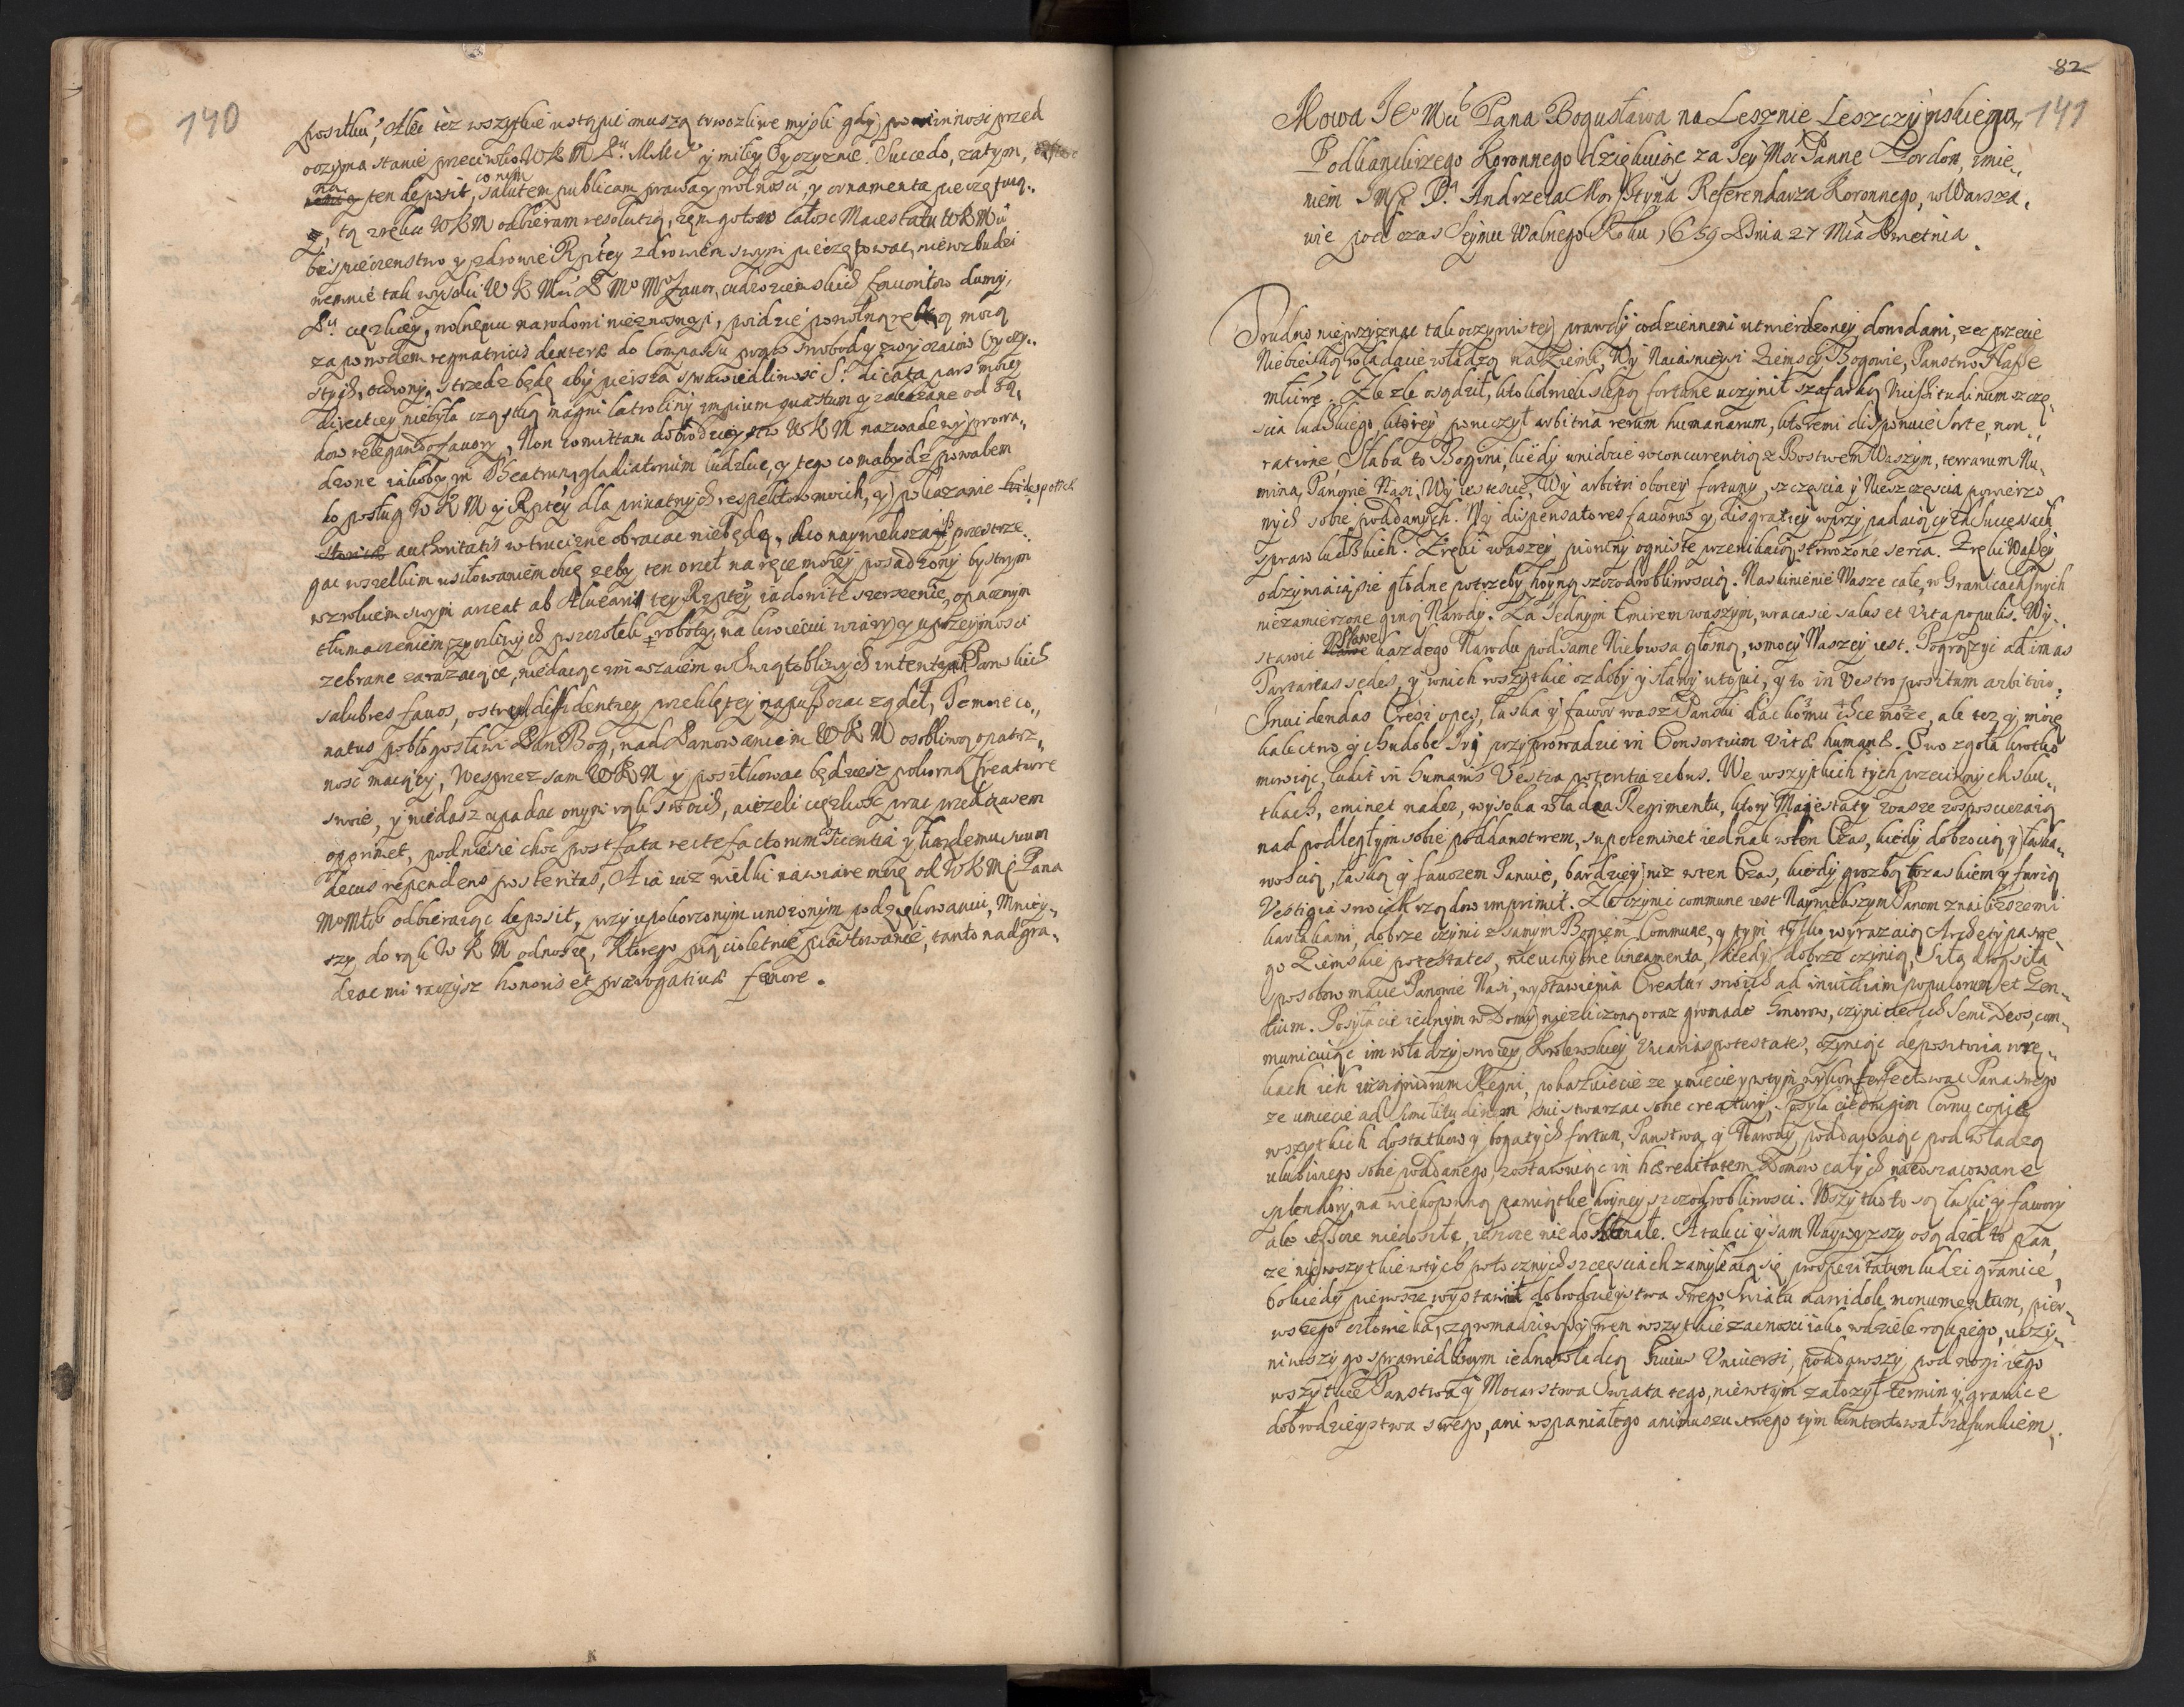 140
posiłku, Ale też wszytkie ustąpić muszą trwozliwe myśli gdy powinnosc przed
oczyma stanie przeciwko WKM Pu MMCu y miłey Oyczyznie. Succedo, zatym,
na ten deposit, co nim salutem publicam prawa y wolnosci, y ornamenta pieczętuią,
tą z ręku WKM odbieram resolutią, żem gotow całosc Maiestatu WKMci
bespieczenstwo y zdrowie Rzptey zdrowiem swym pieczętowac, niewzbudzi
wemnie tak wysoki WKMci P Mo Mo favor, cudzoziemskich fauoritow dumy,
cięzkiey, wolnemu narodowi nieznosney, poidzie powolną ręką moią
za powodem regnatricis dexterae do compassu praw swobod y zwyczaiow Oyczy-
stych, strzedz będę aby pieczęc sprawiedliwosci S. dicata pars moiey
directiey niebyła cząstką magni latrocinij impium quaestum y zakazane od są-
dow relegando favory, Non comittam dobrodzieystw WKM nazwade wyprowa-
dzone iakoby in Theatrum gladiatorium ludzkie, y tego co ma bydz powabem
do posług WKM y Rzptey dla priuatnych respektow moich, y pokazanie
authoritatis w truciznę obracac niebędę, a co naywieksza przestrze-
gac wszelkim usiłowaniem chcę zeby ten orzeł na ręce moiey posadzony bystrym
wzrokiem swym arceat ab Aluearij tey Rzptey iadowite szerszenie, opacznym
tłumaczeniem zyczliwych pszczołek robotę, na kwieciu wiary y uprzeymosci
zebrane zarazaiące, niedaiąc im w swiątobliwych intentach Panskich
salubres favos, ostrych diffidentiey przeklętey napuszczac ządeł, Te moie co-
natus pobłogosławi Pan Bog, nad Panowaniem WKM osobliwą opatrz-
nosc maiący, Wesprzesz sam WKM y posiłkowac będziesz pokorną Creaturę
swoię, y niedasz upadac onym rąk swoich, a iezeli cięzkosc prac przed czasem
opprimet, podniesie choc post fata recte factorum Scientia y kazdemu suum
decus rependens posteritas, A ia iuz wielki na wiarę moię od WKMC Pana
MoMCiwo odbieraiąc deposit, przy upokorzonym unizonym podziękowaniu, Mniey-
szy do rąk WKM odnoszę, Ktorego pięcioletnie piastowanie, tanto nadgra-
dzac mi raczysz honoris et praerogatiuae foenore.
82
141
Mowa Jeo Mci Pana Bogusława na Lesznie Leszczynskiego
Podkanclirzego Koronnego dziękuiąc za Jey Mc Pannę Gordon, imie-
niem JMP P. Andrzeia Morsztyna Referendarza Koronnego, w Warsza-
wie pod czas Seymu Walnego Roku 1659 Dnia 27 Mca Kwietnia.
Trudno nieprzyznac tak oczywistey prawdy codziennemi utwierdzoney dowodami, zec przecie
Niebieską władacie władzą na Ziemi, Wy Naiasnieysi Ziemscy Bogowie, Panstwo Nasze
Mciwe. Zle zle osądził, ktokolwiek slepą fortunę uczynił szafarką Vicissitudinum szczę-
scia ludzkiego, ktorey poruczył arbitria rerum humanarum, ktoremi disponuie sorte, non
ratione, Słaba to Bogini, kiedy wnidzie w concurentią z Bostwem Waszym, terrarum Nu-
mina, Panowie Nasi, Wy iestescie, Wy arbitri oboiey fortuny, szczęscia y Nieszczęscia powierzo-
nych sobie poddanych. Wy dispensatores fauorow y disgratiey w przypadaiących successach
spraw ludzkich. Z ręki waszey pioruny ogniste przenikaią strwozone serca. Z ręki Waszey
odzywiaią się głodne potrzeby hoyną szczodrobliwoscią. Na skinienie Wasze całe, w Granicach swych
niezamierzone giną Narody. Za Jednym Emirem waszym, wraca się salus et Vita populis. Wy-
stawic Sławę kazdego Narodu pod same Niebiosa głosną, w mocy Naszey iest. Pogrązyc ad imas
Tartareas sedes, y wnich wszytkie ozdoby y sławy utopic, y to in Vestro positum arbitrio.
Inuidendas Cresi opes, łaska y fawor wasz Panski dac komu chce moze, ale tez y moię
kalectwo y chudobę Iri przyprowadzic in Consortium vitae humanae. Owo zgoła krotko
mowiąc, ludit in humanis Vestra potentia rebus. We wszytkich tych przeciwnych sku-
tkach, eminet nader, wysoka władza Regimentu, ktory Maiestaty wasze rosposcieraią
nad podległym sobie poddanstwem, supereminet iednak w ten Czas, kiedy dobrocią y łaska-
woscią, łaską y fauorem Panuie, bardziey niz w ten Czas, kiedy grozbą trzaskiem y furią
Vestigia swoich rządow imprimit. Zle czynic commune iest Naywiekszym Panom z naibliszemi
kastakami, dobrze czynic z samym Bogiem Commune, y tym tylko wyrazaią Archetypa swe-
go Ziemskie potestates, nieuchybne lineamenta, kiedy dobrze czynią, Siłą drog siła
sposobow macie Panowie Nasi, wystawienia Creatur swoich ad inuidiam populorum et Gen-
tium. Posyłacie iednym w Domy niezliczoną oraz gromadę honorow, czynicie Ich Semi Deos, com-
municuiąc im władzy swoiey Krolewskiey Vicarias potestates, czyniąc depositoria w rę-
kach ich insigniorum Regni, pokazuiecie ze umiecie y wtym wykonterfectowac Pana swego
ze umiecie ad similitudinem sui stwarzac sobie creatury. Posyłacie drugim Cornu copiae
wszytkich dostatkow y bogatych fortun, Panstwa y Narody, poddawaiąc pod władzą
ulubionego sobie poddanego, zostawuiąc in haereditatem Domow całych nieoszacowane
splendory, na wiekopomną pamiątkę hoyney szczodrobliwosci. Wszytko to są łaski y fawory
ale ieszcze niedosyta, ieszcze niedoskonałe. A takci y sam Naywyzszy osądził to Pan,
ze nie wszytkie w tych potocznych szczęsciach zamykaią się prosperitatum ludzi granice,
bo kiedy pierwsze wystawił dobrodzieystwa swego Swiatu na widok monumentum, pier-
wszego człowieka, zgromadziwszy wen wszytkie zacnosci iako w dziele rąk iego, uczy-
niwszy go sprawiedliwym iednowładcą huius Vniuersi, poddawszy pod nogi iego
wszytkie Panstwa y Mocarstwa Swiata tego, nie w tym załozył termin y granice
dobrodzieystwa swego, ani wspaniałego animuszu swego tym kontentował szafunkiem,